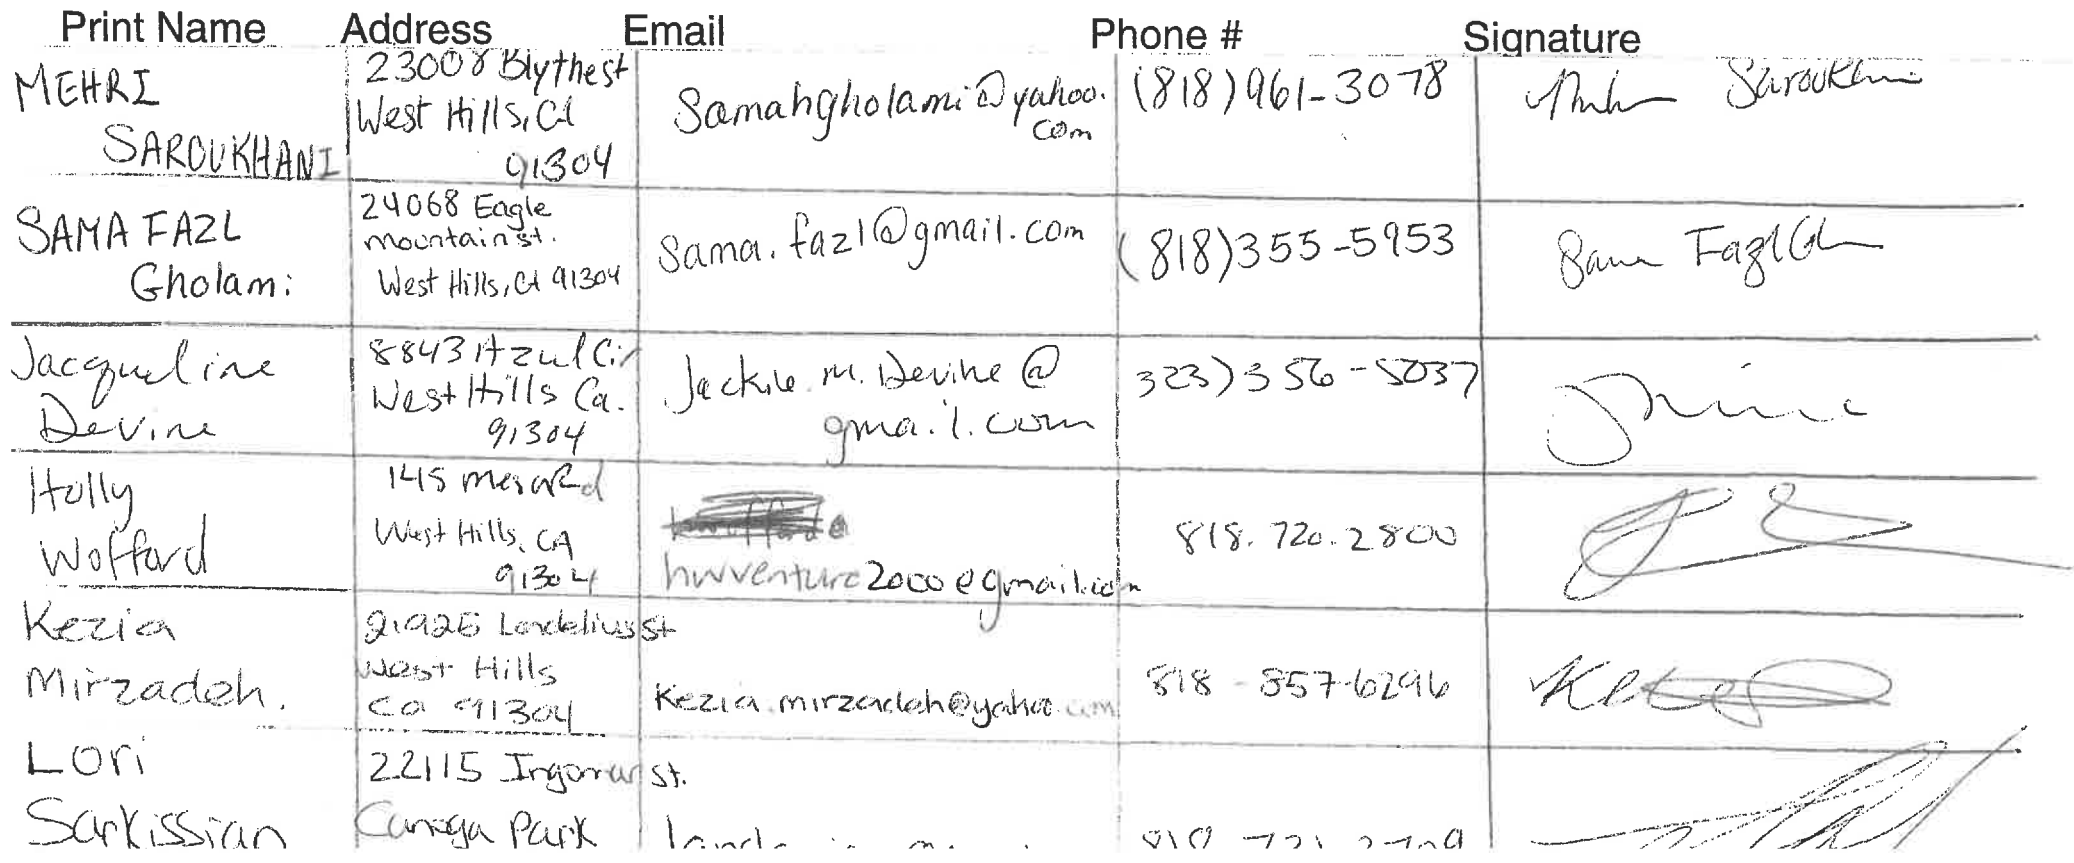 Print Name Address Email Phone # Signature
MEHRI
SAROUKHANI
23008 Blythe st
West Hills, CA
91304
Samahgholami@yahoo.
com
(818) 961-3078
Saroukhani
SAMA FAZL
Gholami
24068 Eagle
mountain st.
West Hills, CA 91304
Sama.fazl@gmail.com
(818) 355-5953
Sama Fazl Gh
Jacqueline
Devine
8843 Azul Cir
West Hills Ca.
91304
Jackie.m.Devine@
gmail.com
323) 356-5037
Holly
Wofford
145 Mesa Rd
West Hills, CA
91304
hwventure2000@gmail.com
818.720.2800
Kezia
Mirzadeh.
21925 Londelius st
West Hills
Ca 91304
Kezia.mirzadeh@yahoo.com
818-857-6296
Lori
Sarkissian
22115 Ingomar st.
Canoga Park